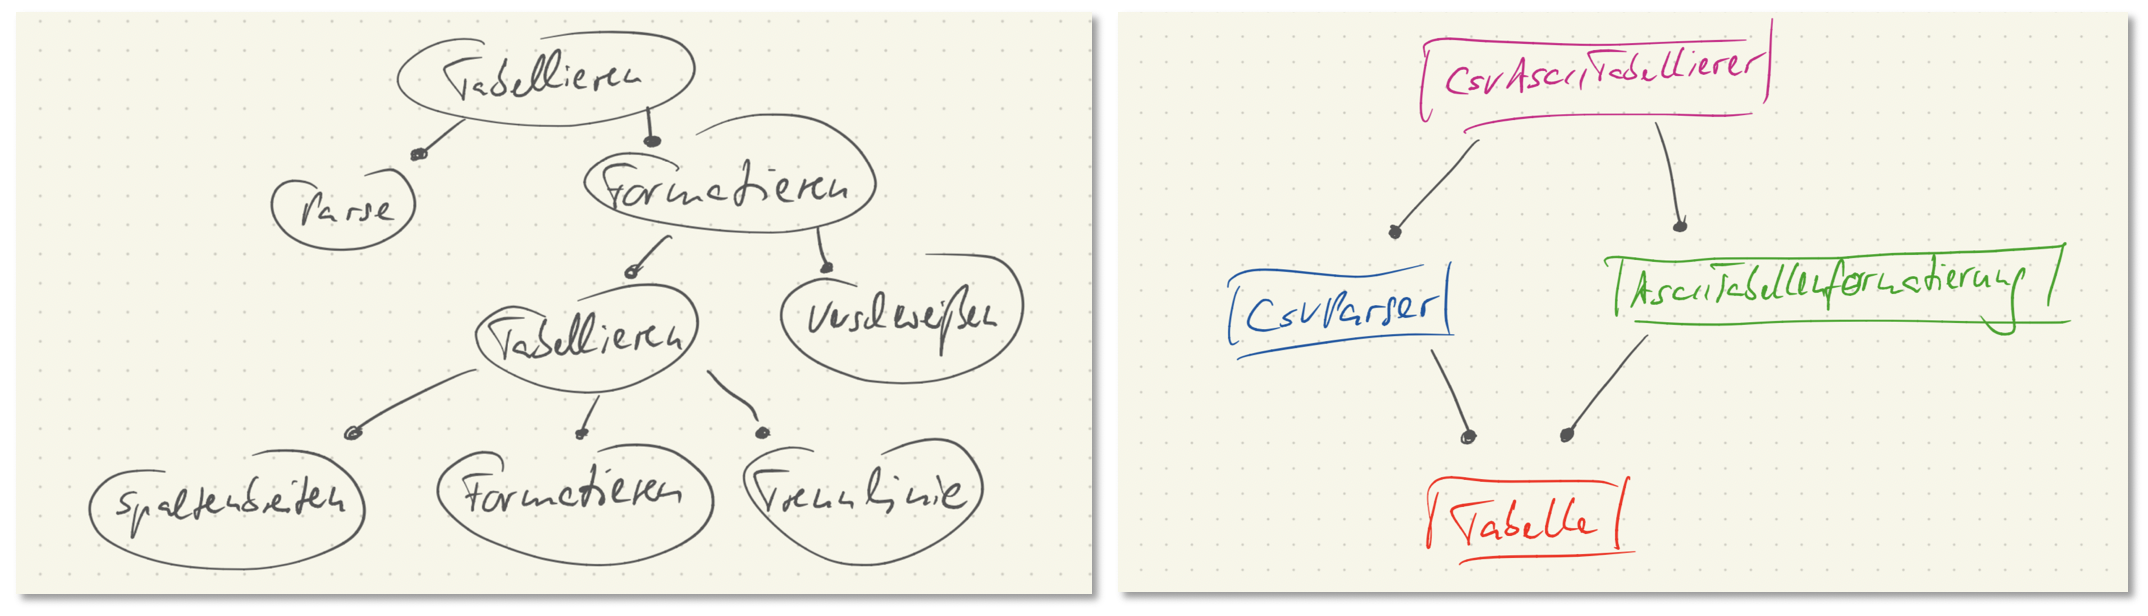 Tabellieren
Parse
Formatieren
Tabellieren
Verschweißen
Spaltenbreiten
Formatieren
Trennlinie
CsvAsciiTabellierer
CsvParser
AsciiTabellenformatierung
Tabelle